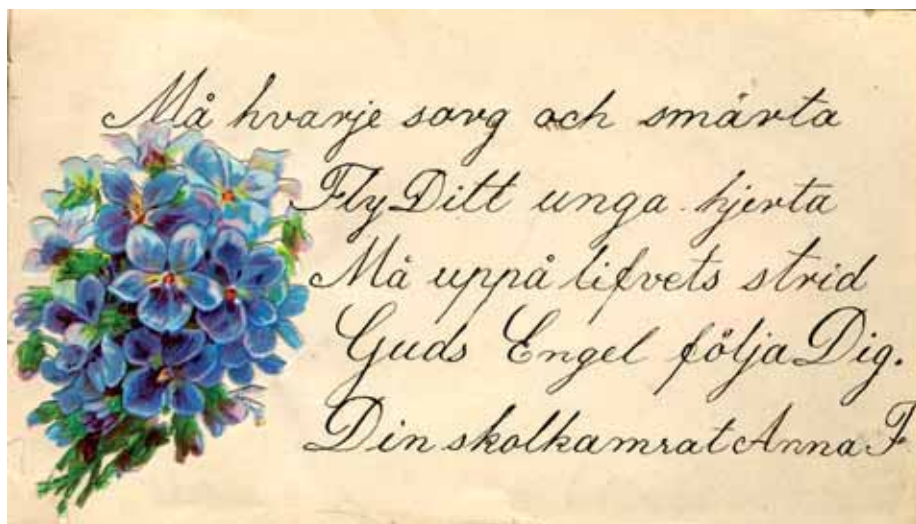 Må hvarje sorg och smärta
Fly Ditt unga hjerta
Må uppå lifvets strid
Guds Engel följa Dig.
Din skolkamrat Anna F